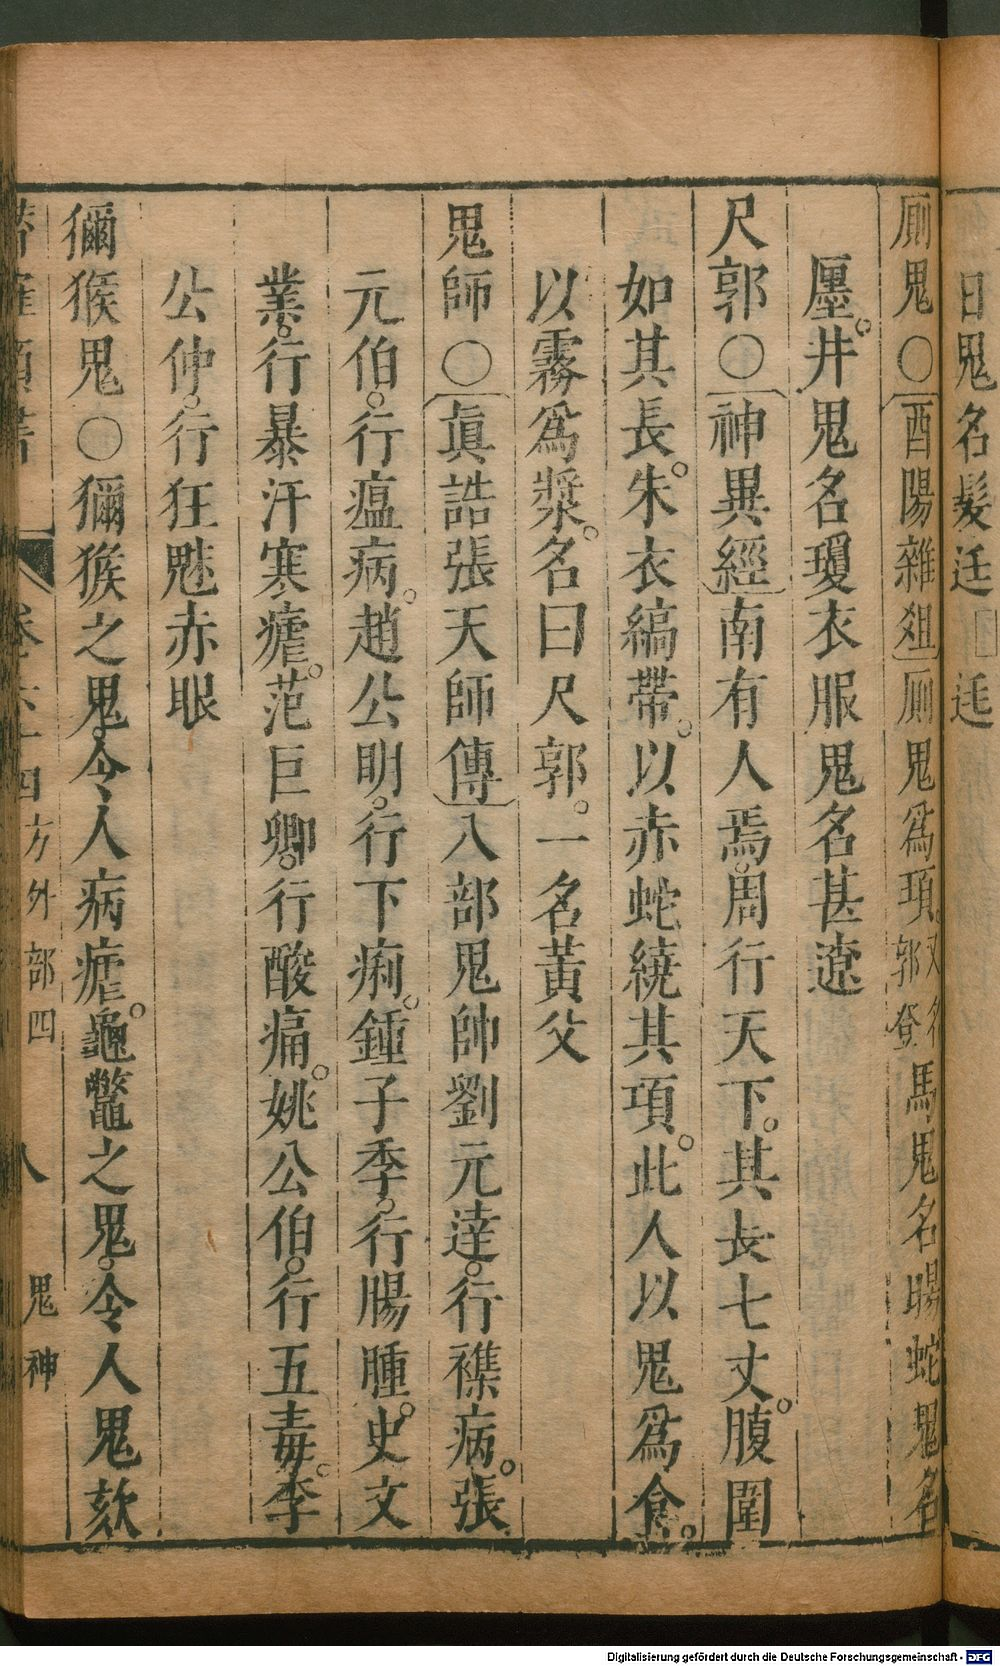 日鬼名髮廷 廷
廁鬼○酉陽雜俎廁鬼爲頊又名郭登馬鬼名賜蛇鬼名
厘。井鬼名瓊衣服鬼名甚遼
尺郭○神異經南有人焉。周行天下。其長七丈。腹圍
如其長。朱衣縞帶。以赤蛇繞其項。此人以鬼爲食。
以霧爲漿。名曰尺郭。一名黃父
鬼師○眞誥張天師傳八部鬼帥劉元達。行襍病。張
元伯。行瘟病。趙公明。行下痢。鍾子季。行腸腫。史文
業。行暴汗寒瘧。范巨卿。行酸痛。姚公伯。行五毒。李
公仲。行狂魅赤眼
獼猴鬼○獼猴之鬼。令人病瘧。龜鱉之鬼。令人鬼欬
類書 卷 四方外部四 八 鬼神
Digitalisierung gefördert durch die Deutsche Forschungsgemeinschaft - DFG